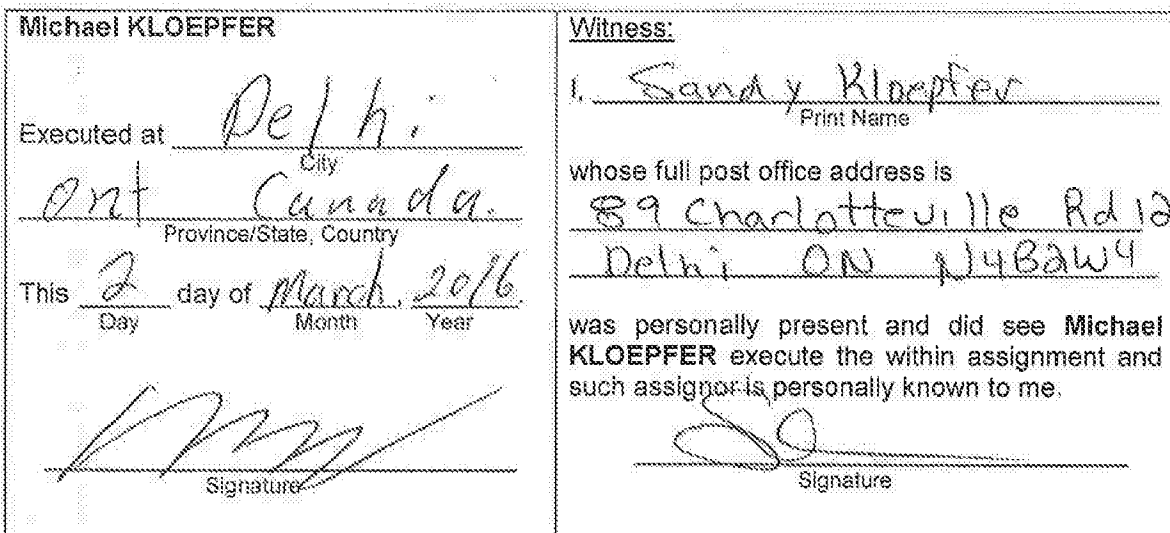 Michael KLOEPFER
Executed at Delhi
City
Ont Canada.
Province/State, Country
This 2 day of March, 2016.
Day Month Year
Signature
Witness:
I, Sandy Kloepfer
Print Name
whose full post office address is
89 Charlotteville Rd 12
Delhi ON N4B2W4
was personally present and did see Michael
KLOEPFER execute the within assignment and
such assignor is personally known to me.
Signature